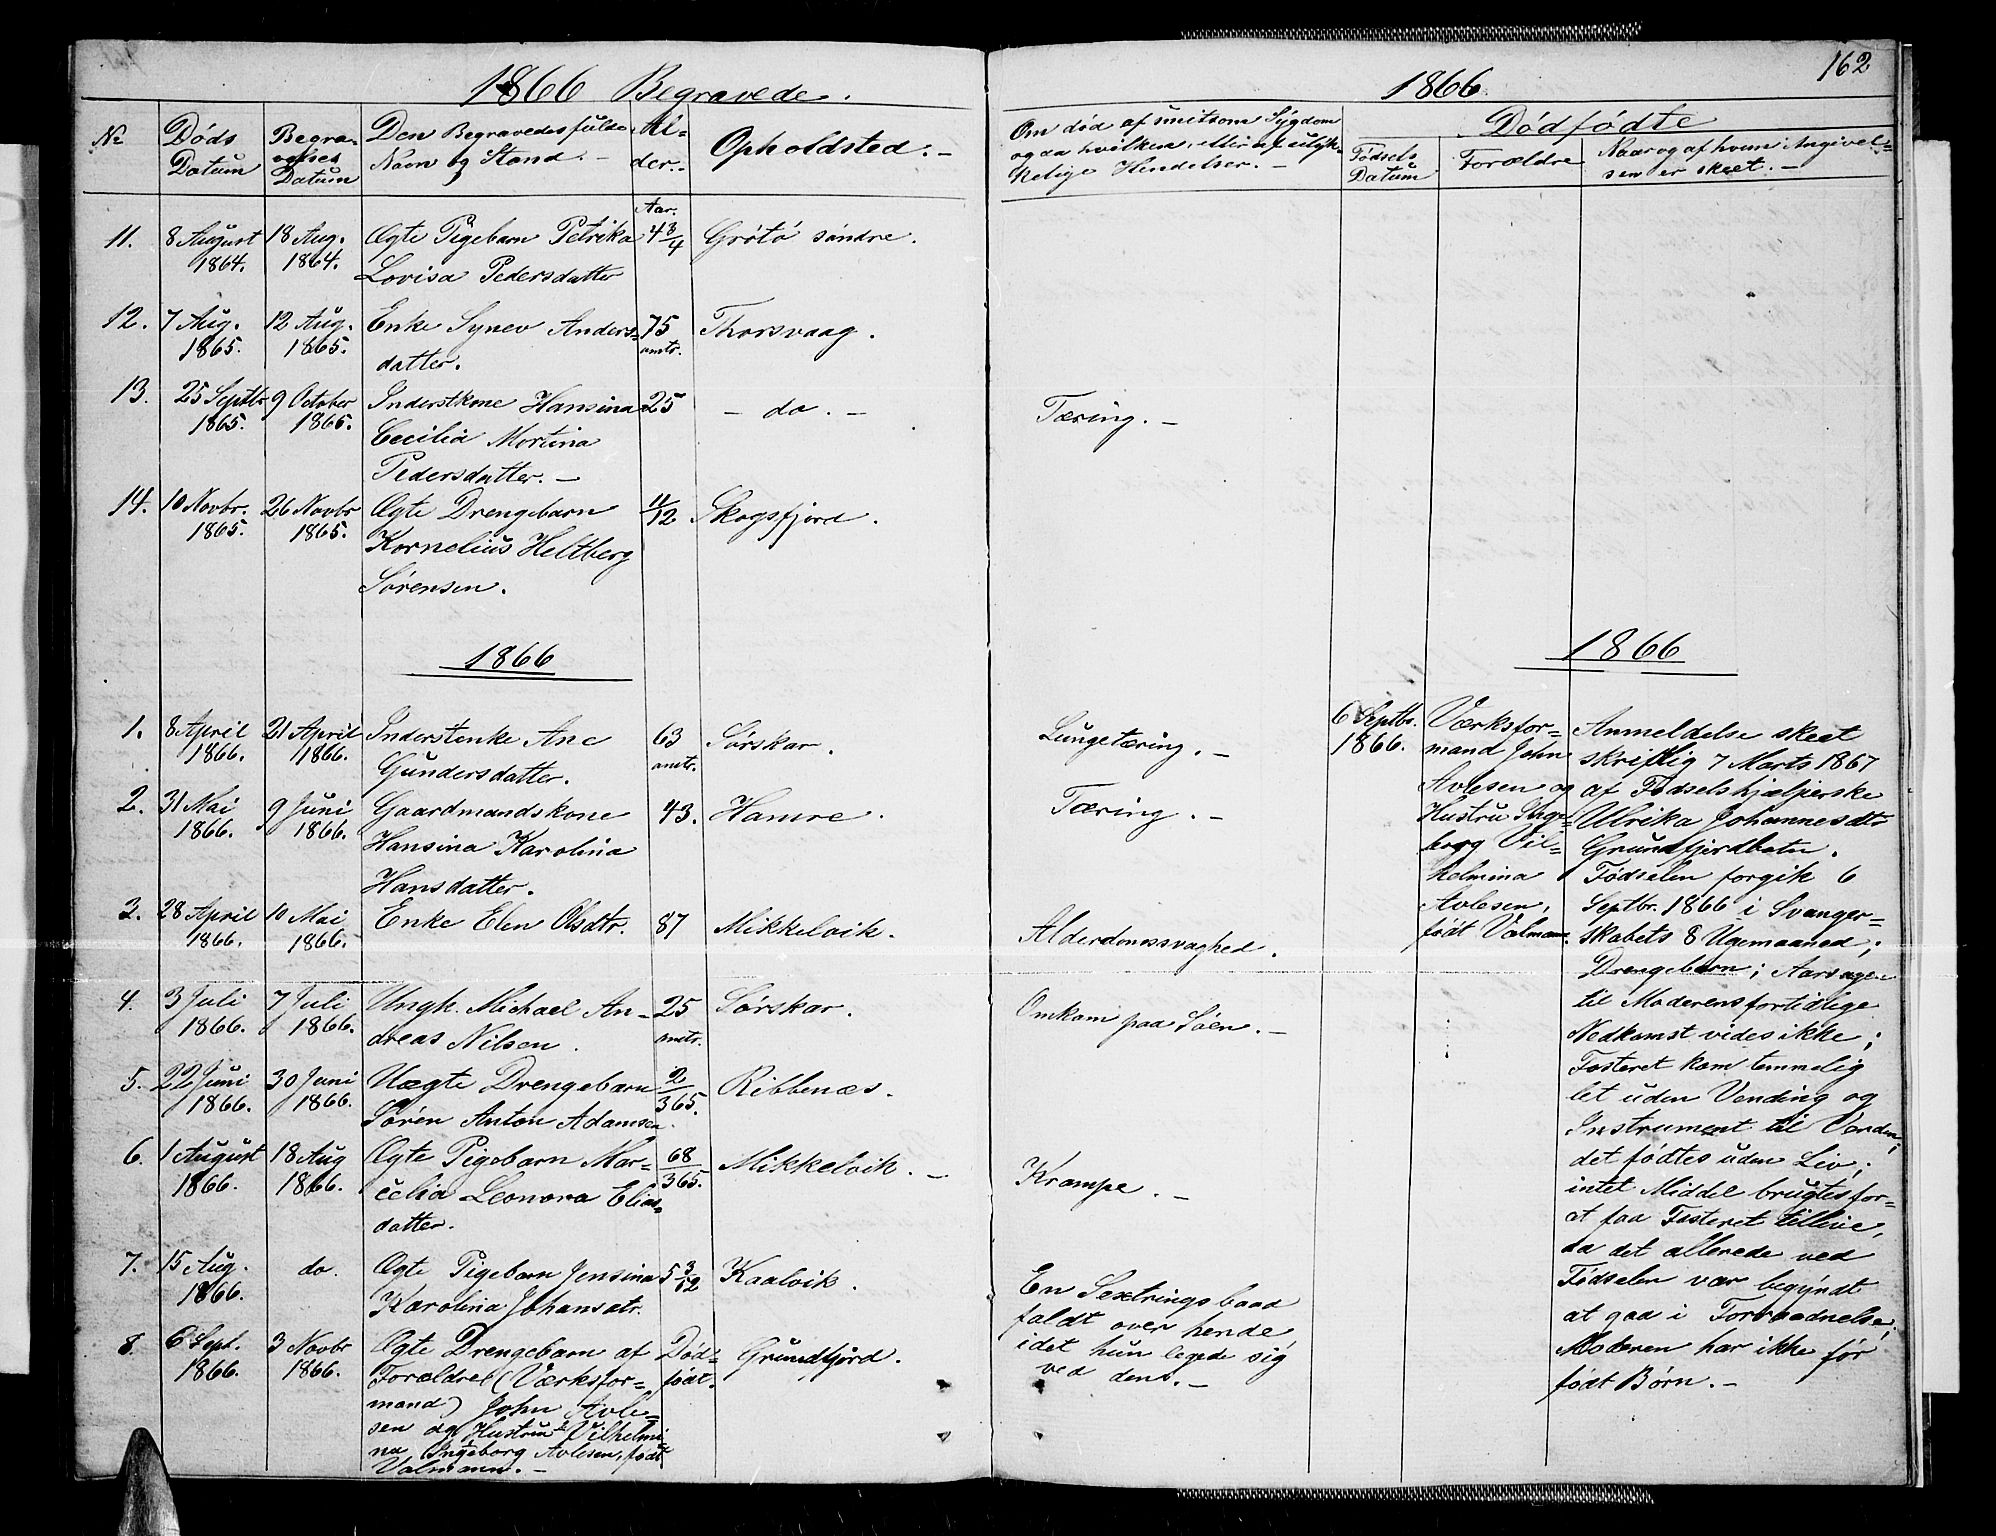 162
1866 Begravede.
1866
No
Døds Datum
Begravelses Datum
Den Begravedes fulde Navn og Stand. –
Alder.
Opholdsted. –
Om død af smitsom Sygdom
og da hvilken, eller af ulyk-
kelige Hendelser. –
Dødfødte
Fødsels Datum
Forældre
Naar og af hvem Angivel-
sen er skeet. –
Aar.
11. 8 August 18 Aug. Ægte Pigebarn Petrika 4 3/4 Grøtø søndre.
1864. 1864. Lovisa Pedersdatter
12. 7 Aug. 12 Aug. Enke Synev Anders- 75 Thorsvaag.
1865. 1865. datter. omtr.
13. 25 Septbr 9 October Inderstkone Hansina 25 – do. – Tæring. –
1865. 1865. Cecilia Martina
Pedersdatter. –
14. 10 Novbr. 26 Novbr Ægte Drengebarn 11/12 Skogsfjord.
1865. 1865. Kornelius Heltberg
Sørensen.
1866
1. 8 April 21 April Inderstenke Ane 63 Sørskar. Lungetæring. –
1866. 1866. Gundersdatter. omtr.
2. 31 Mai 9 Juni Gaardmandskone 43. Hamre. Tæring. –
1866. 1866. Hansina Karolina
Hansdatter.
3. 28 April 10 Mai Enke Elen Olsdtr. 87 Mikkelvik. Alderdomssvaghed.
1866. 1866.
4. 3 Juli 7 Juli Ungk. Michael An- 25 Sørskar. Omkom paa Søen. –
1866. 1866. dreas Nilsen. omtr.
5. 22 Juni 30 Juni Uægte Drengebarn 2/365. Ribbenæs.
1866. 1866. Søren Anton Adamsen.
6. 1 August 18 Aug Ægte Pigebarn Mar- 68/365. Mikkelvik. – Krampe. –
1866. 1866. celia Leonora Elias-
datter.
7. 15 Aug. do. Ægte Pigebarn Jensina 5 3/12 Kaalvik. En Sextringsbaad
1866. Karolina Johansdtr. faldt over hende,
idet hun legede sig
ved den. –
8. 6 Sept. 3 Novbr Ægte Drengebarn af Død- Grundfjord.
1866. 1866. Forældre (Værksfor- født.
mand) John Avle-
sen og Hustru Vilhelmi
na Ingeborg Avlesen, født
Valmann. –
1866
6 Septbr.
1866.
Værksfor-
mand John
Avlesen og
Hustru Inge-
borg Vil-
helmina
Avlesen,
født Valmann.
Anmeldelse skeet
skriftlig 7 Marts 1867
af Fødselshjælperske
Ulrika Johannesdtr
Grundfjordbotn.
Fødselen forgik 6
Septbr. 1866 i Svanger-
skabets 8 Ugemaaned;
Drengebarn; Aarsagen
til Moderens fortidlige
Nedkomst vides ikke;
Fosteret kom temmelig
let uden Vending og
Instrument til Verden;
det fødtes uden Liv;
intet Middel brugtes for-
at faa Fosteret tillive,
da det allerede ved
Fødselen var begyndt
at gaa i Forraadnelse;
Moderen har ikke før
født Børn. –